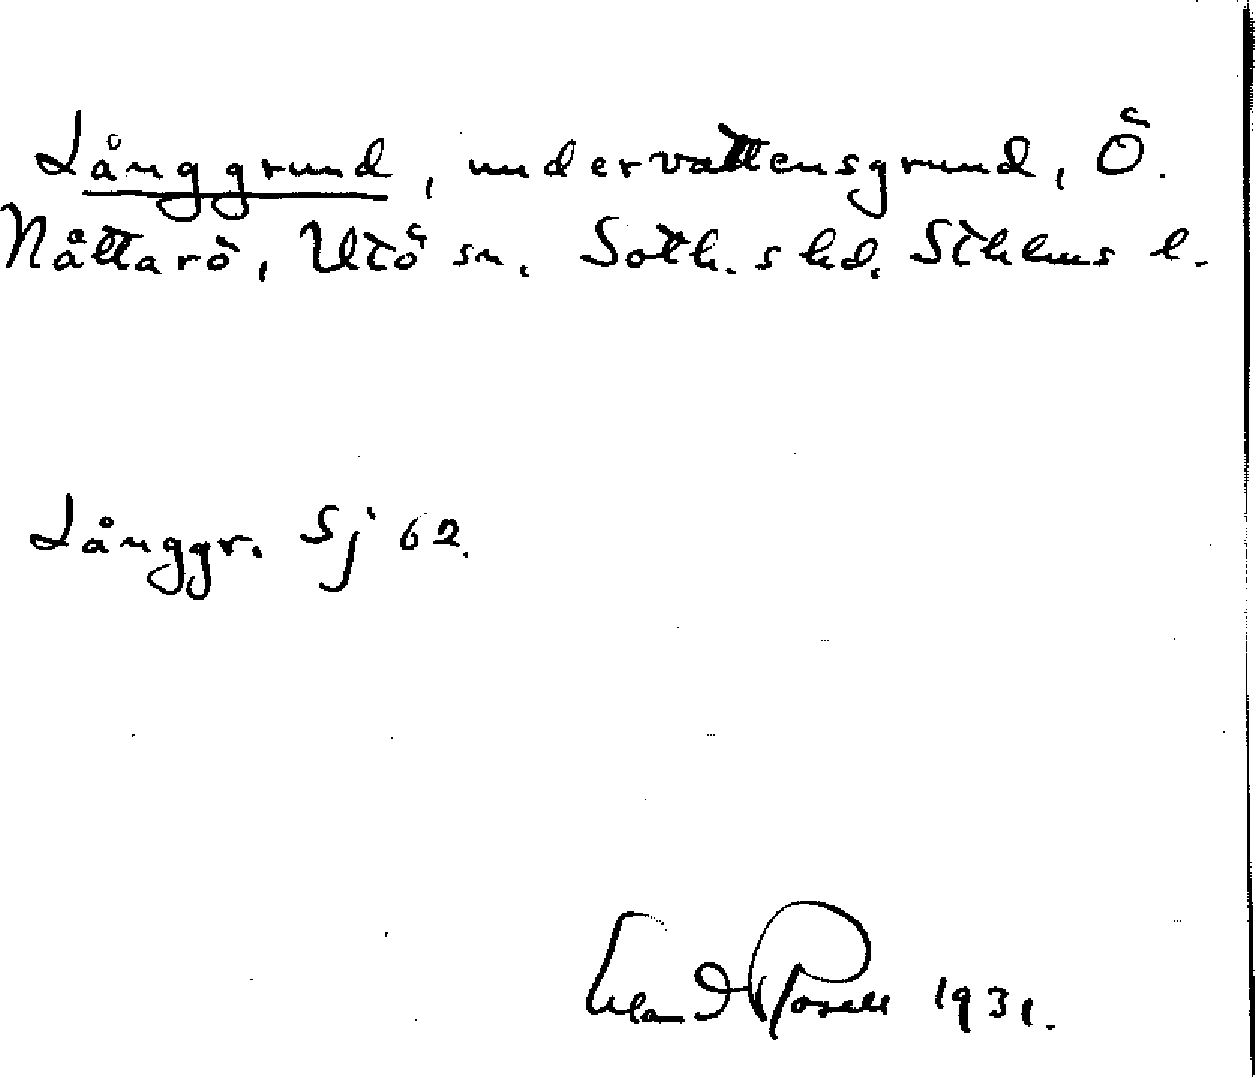 Långgrund, undervattensgrund, Ö.
Nåttarö, Utö sn. Soth. s hd. Sthlms l.
Långgr. Sj 62.
Erland Rosell 1931.